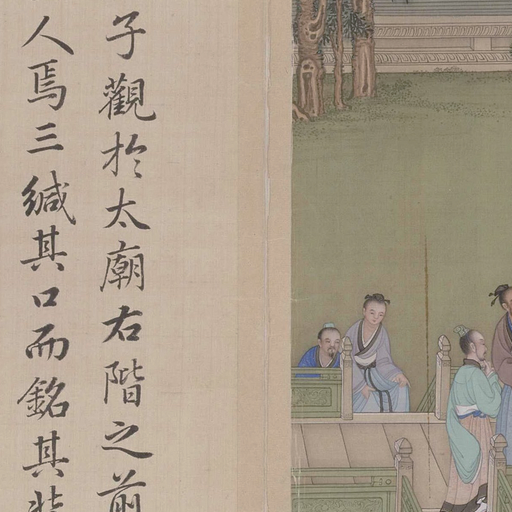 子觀於太廟右階之前
人焉三緘其口而銘其